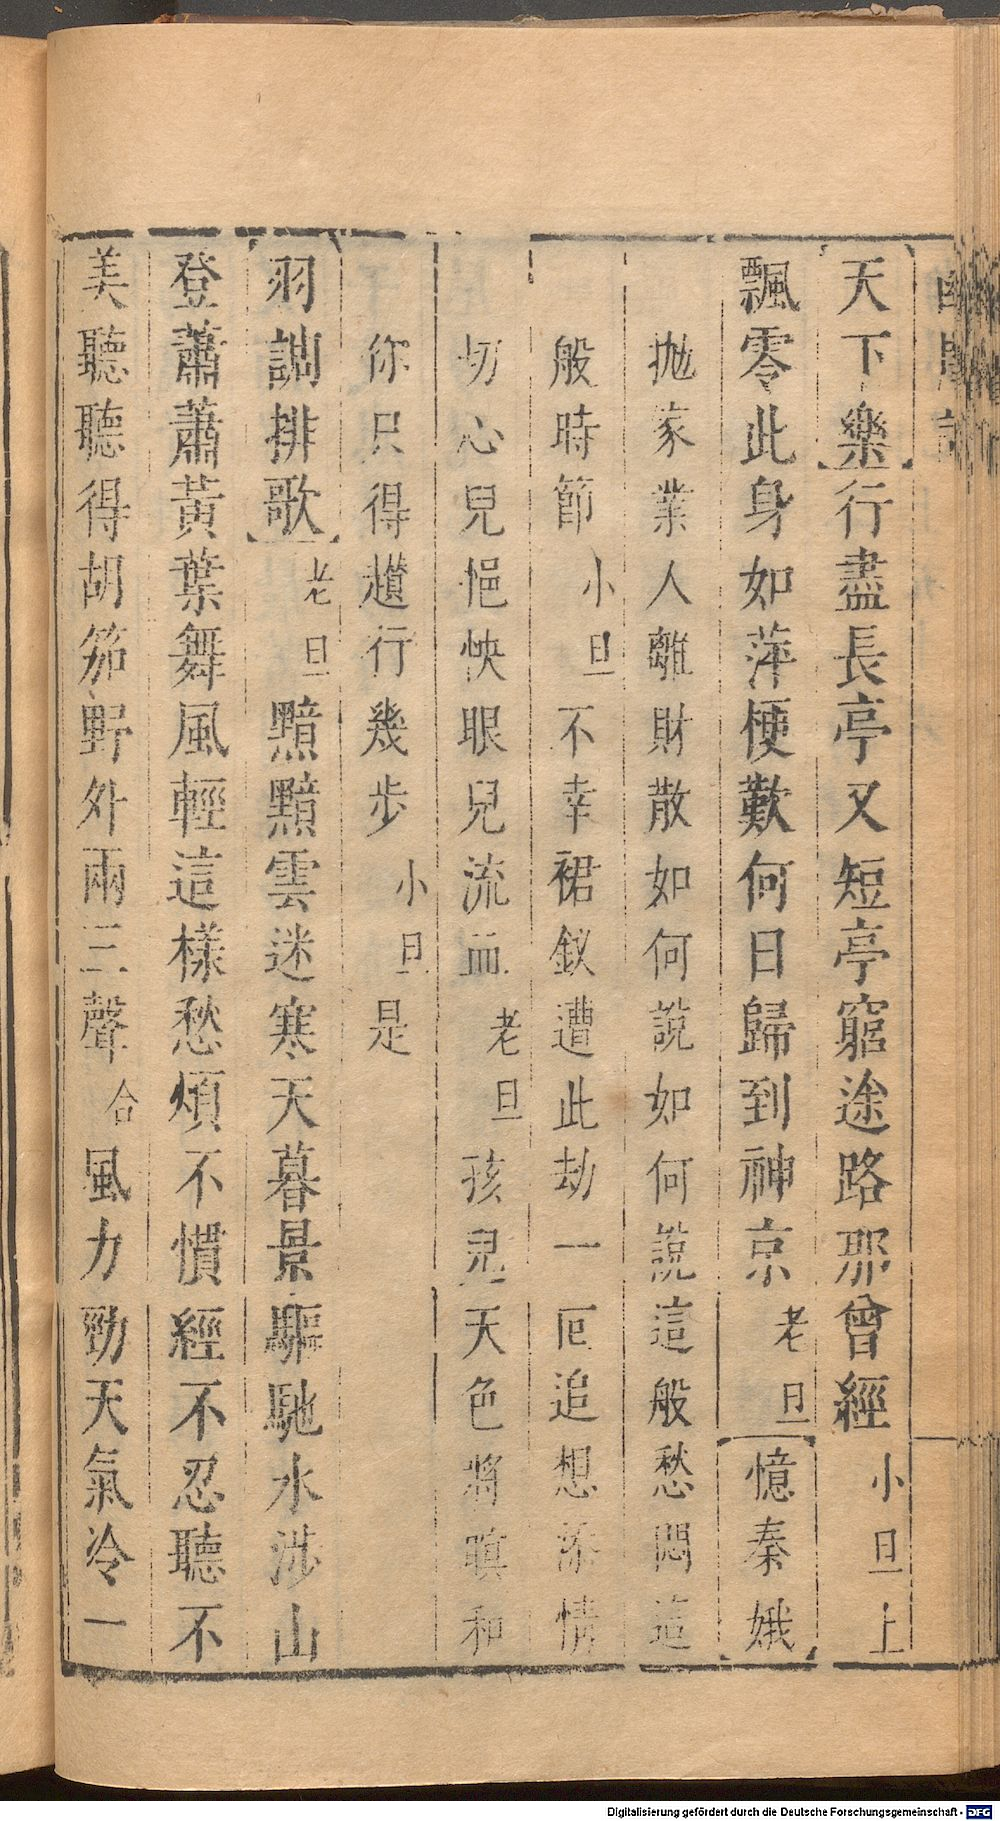 天下樂行盡長亭又短亭窮途路那曾經小旦上
飄零此身如萍梗歎何日歸到神京老旦憶秦娥
拋家業人離財散如何說如何說這般愁悶這
般時節小旦不幸裙釵遭此劫一厄追想添情
切心兒悒怏眼兒流血老旦孩兒天色將暝和
你只得趲行幾步小旦是
羽調排歌老旦黯黯雲迷寒天暮景驅馳水涉山
登蕭蕭黃葉舞風輕這樣愁煩不慣經不忍聽不
美聽聽得胡笳野外兩三聲合風力勁天氣冷一
Digitalisierung gefördert durch die Deutsche Forschungsgemeinschaft - DFG